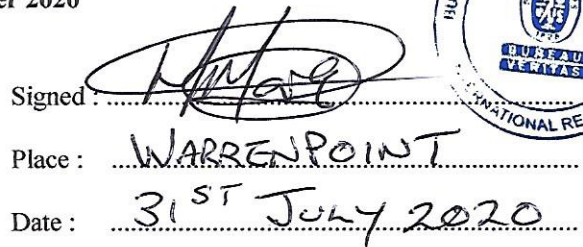 er 2020
BUREAU
VERITAS
Signed :
NATIONAL RE
Place : WARRENPOINT
Date : 31ST JULY 2020